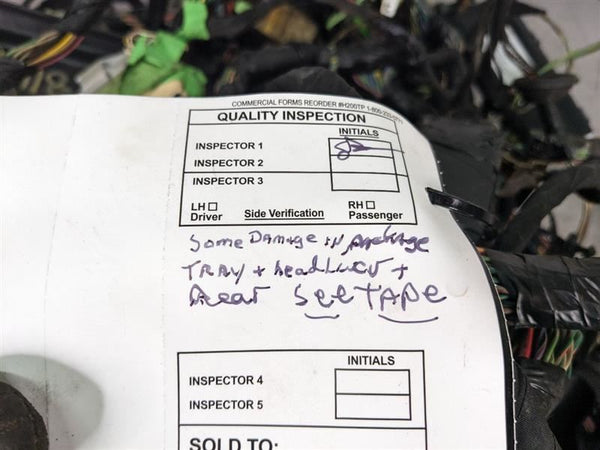 COMMERCIAL FORMS REORDER #H200TP 1-800-
QUALITY INSPECTION
INITIALS
INSPECTOR 1
INSPECTOR 2
INSPECTOR 3
LH ☐ RH ☐
Driver Side Verification Passenger
Some Damage in package
TRAY +
Rear See TAPe
INITIALS
INSPECTOR 4
INSPECTOR 5
SOLD TO: